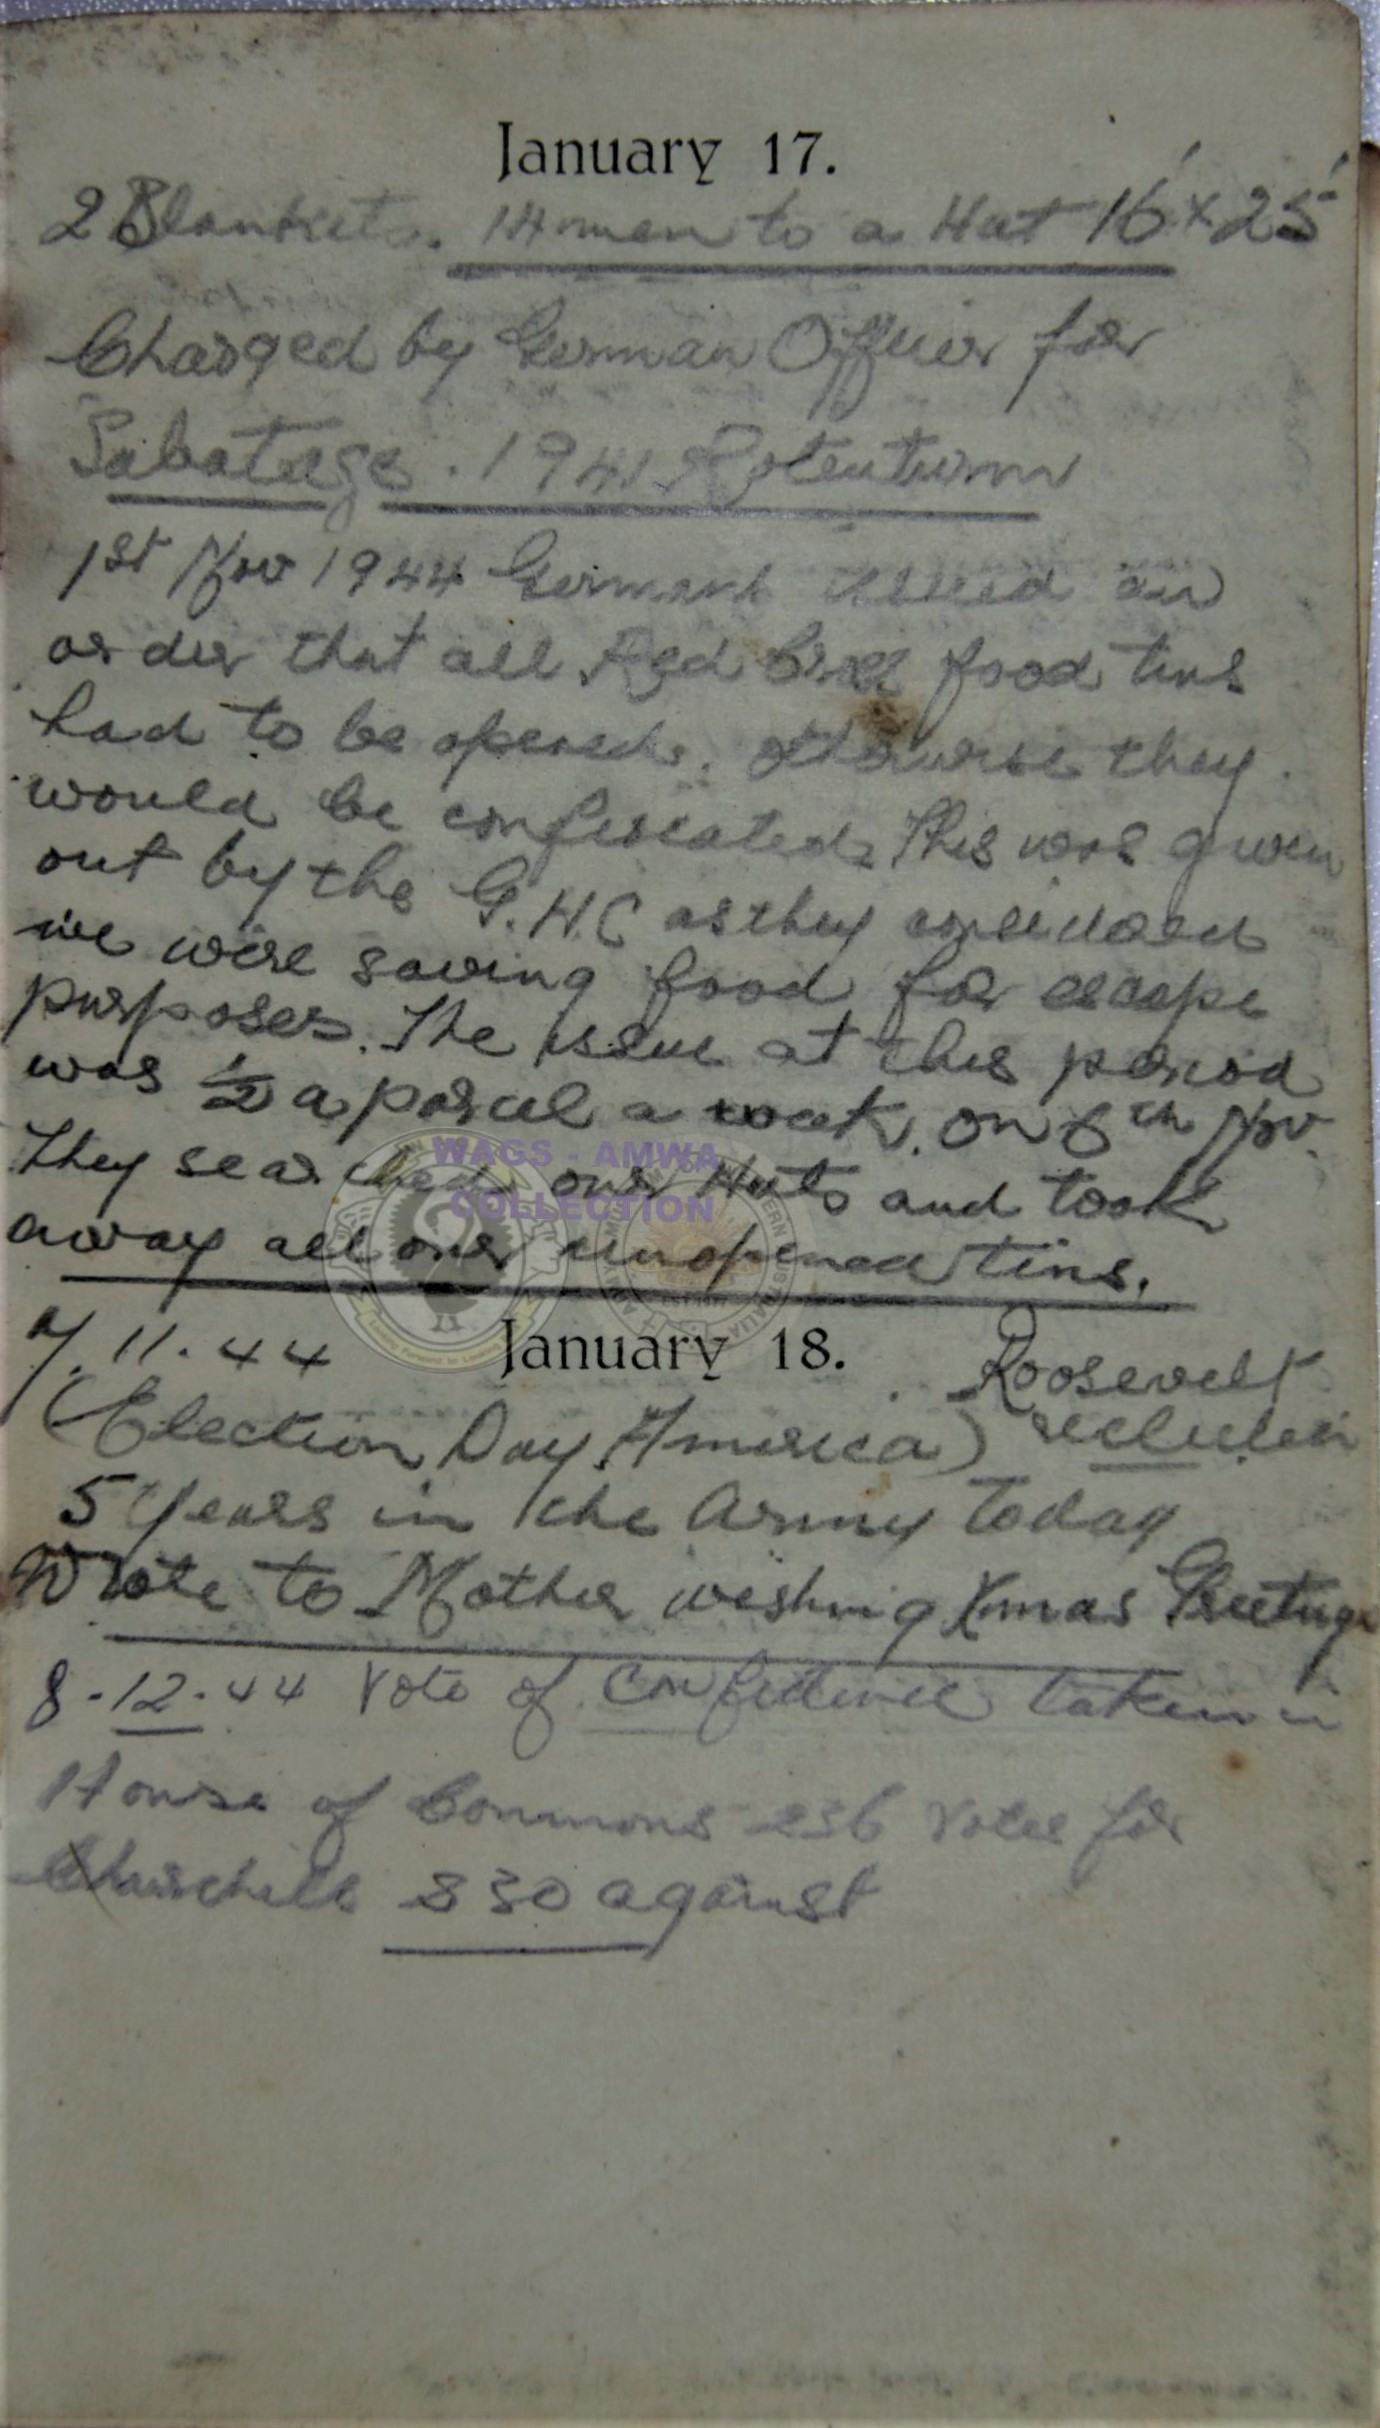 January 17.
2 Blankets. 14 men to a Hut 16' x 25'
Charged by German Officer for
Sabotage. 1941
1st Nov 1944 Germans issued an
order that all Red Cross food tins
had to be opened. otherwise they
would be confiscated. This was given
out by the G.H.C as they considered
we were saving food for escape
purposes. The issue at this period
was ½ a parcel a week. on 6th Nov.
They searched our Huts and took
away all our unopened tins.
7.11.44 January 18. Roosevelt
(Election Day America)
5 Years in the Army today
Wrote to Mother wishing Xmas Greetings
8.12.44 Vote of Confidence taken in
House of Commons votes for
Churchill 30 against
WAGS - AMWA
COLLECTION